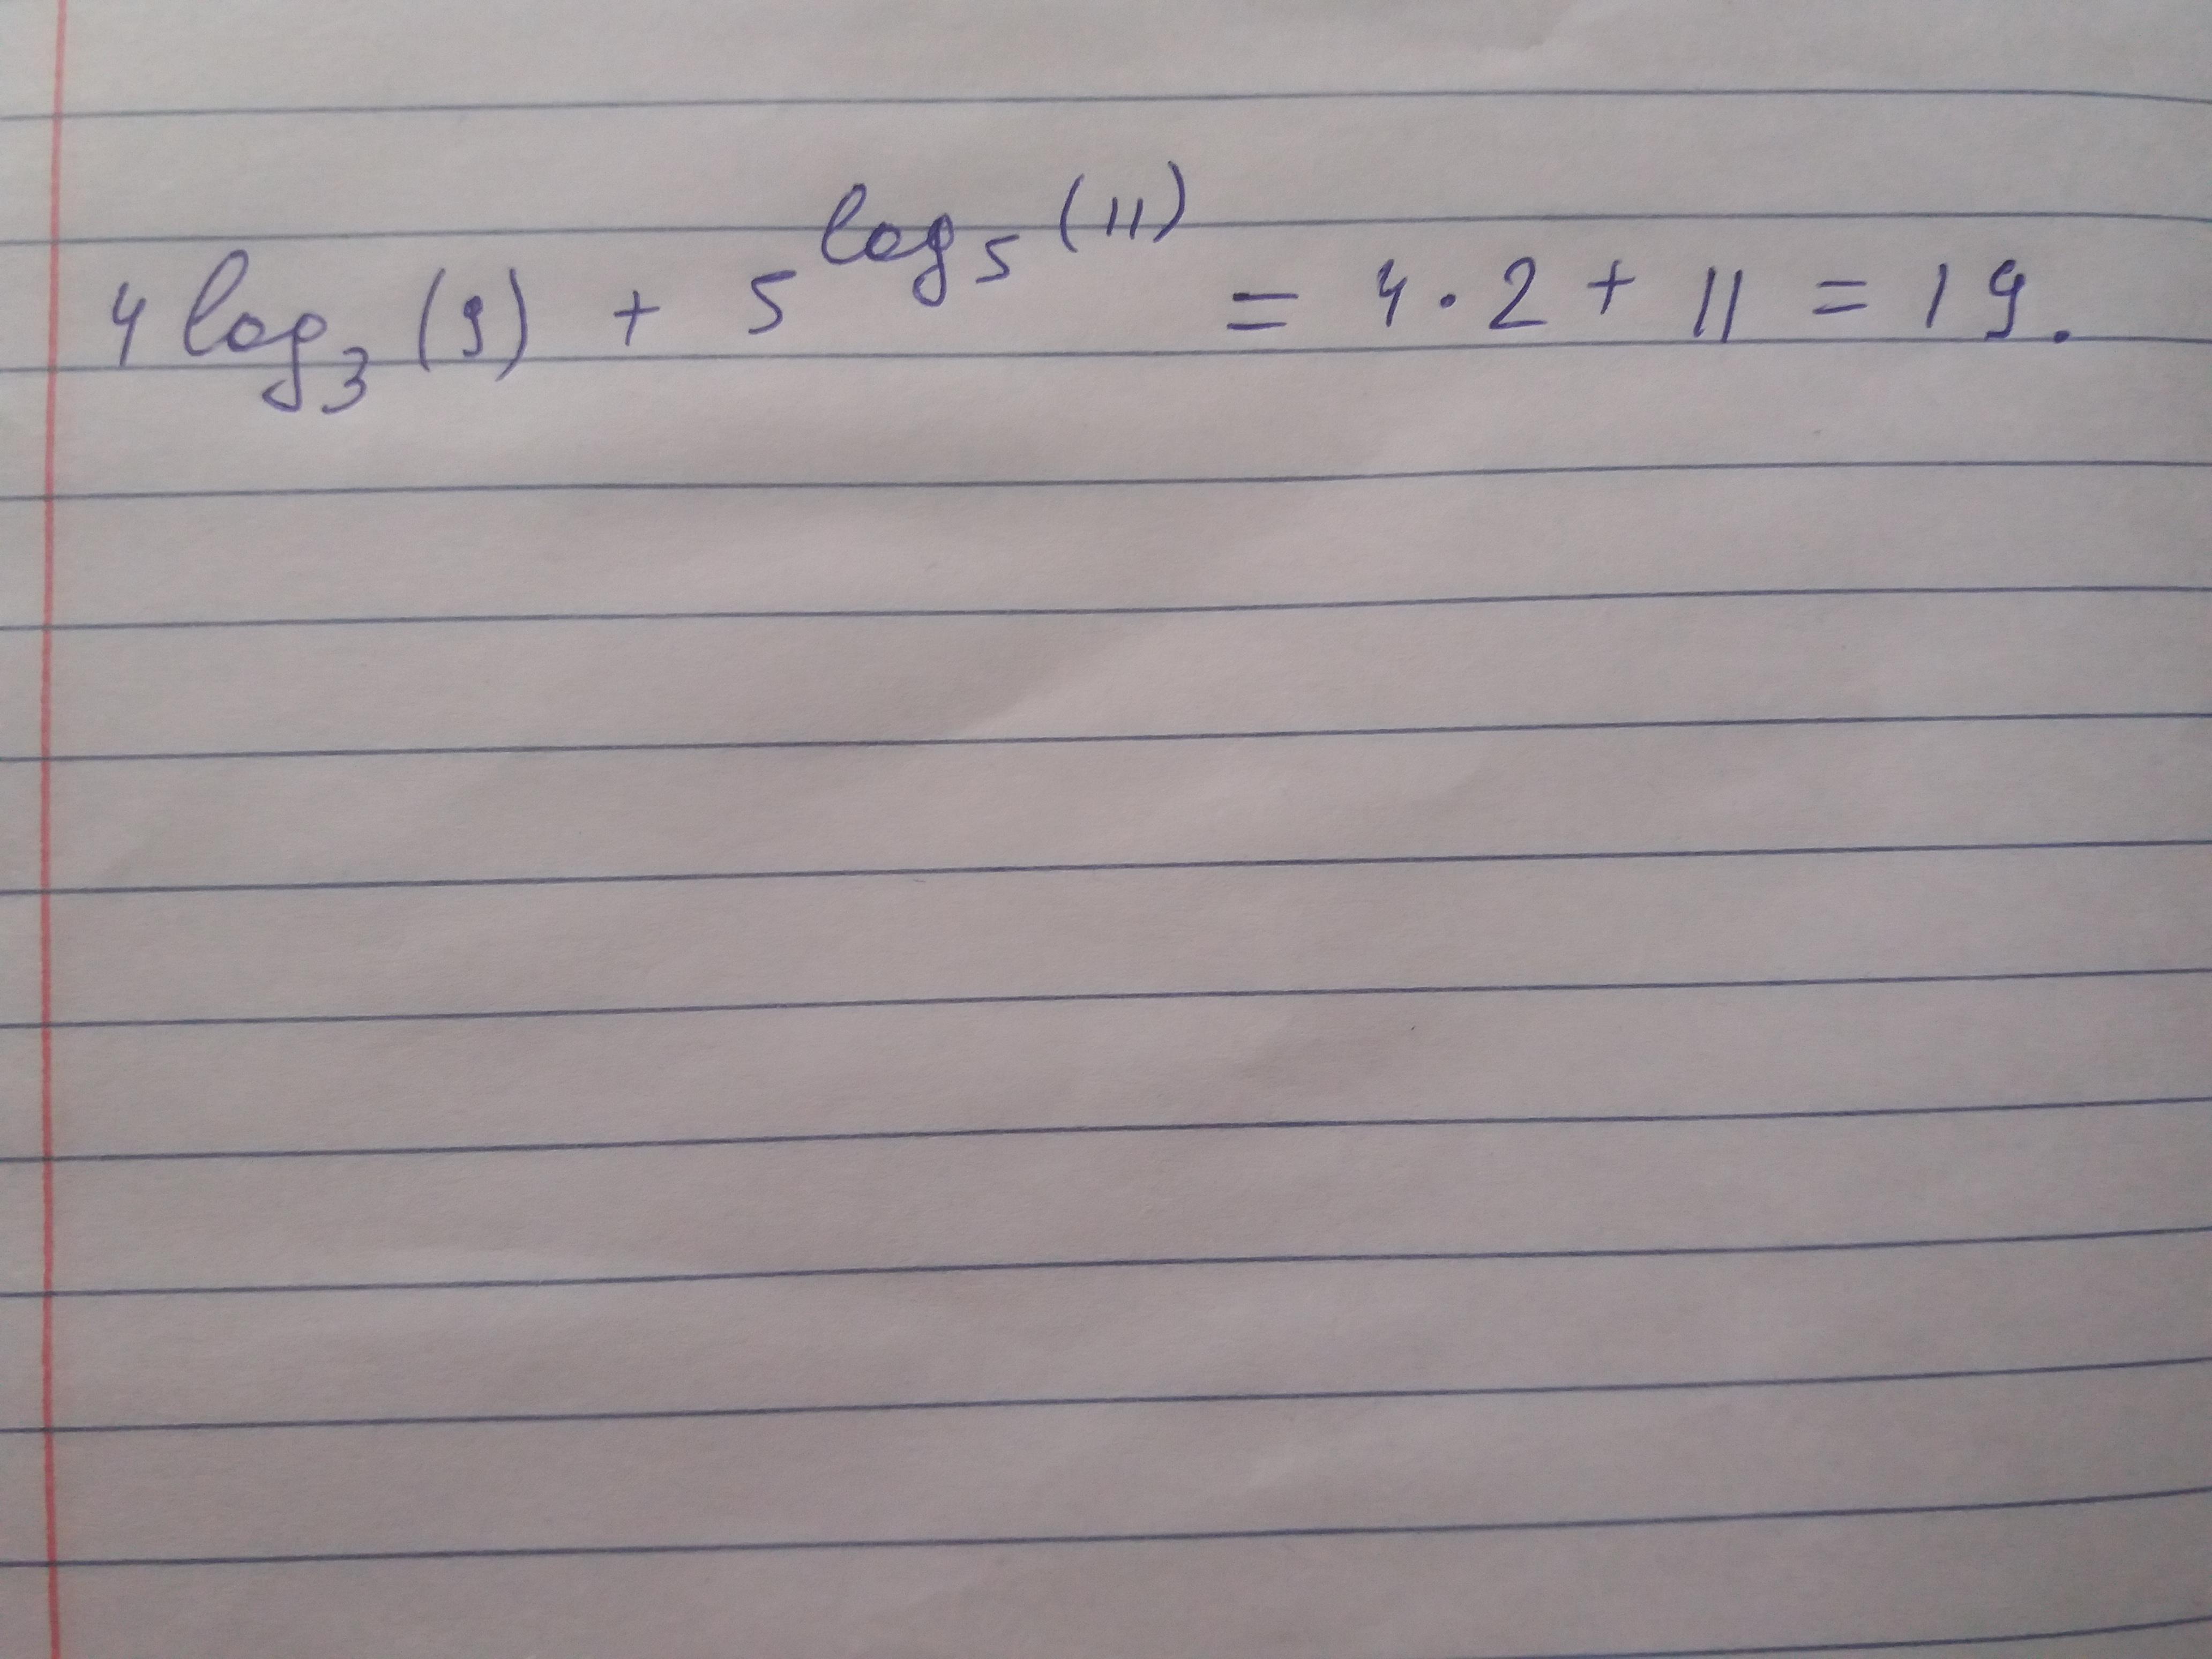 4 log₃ (9) + 5^(log₅ (11)) = 4 · 2 + 11 = 19.